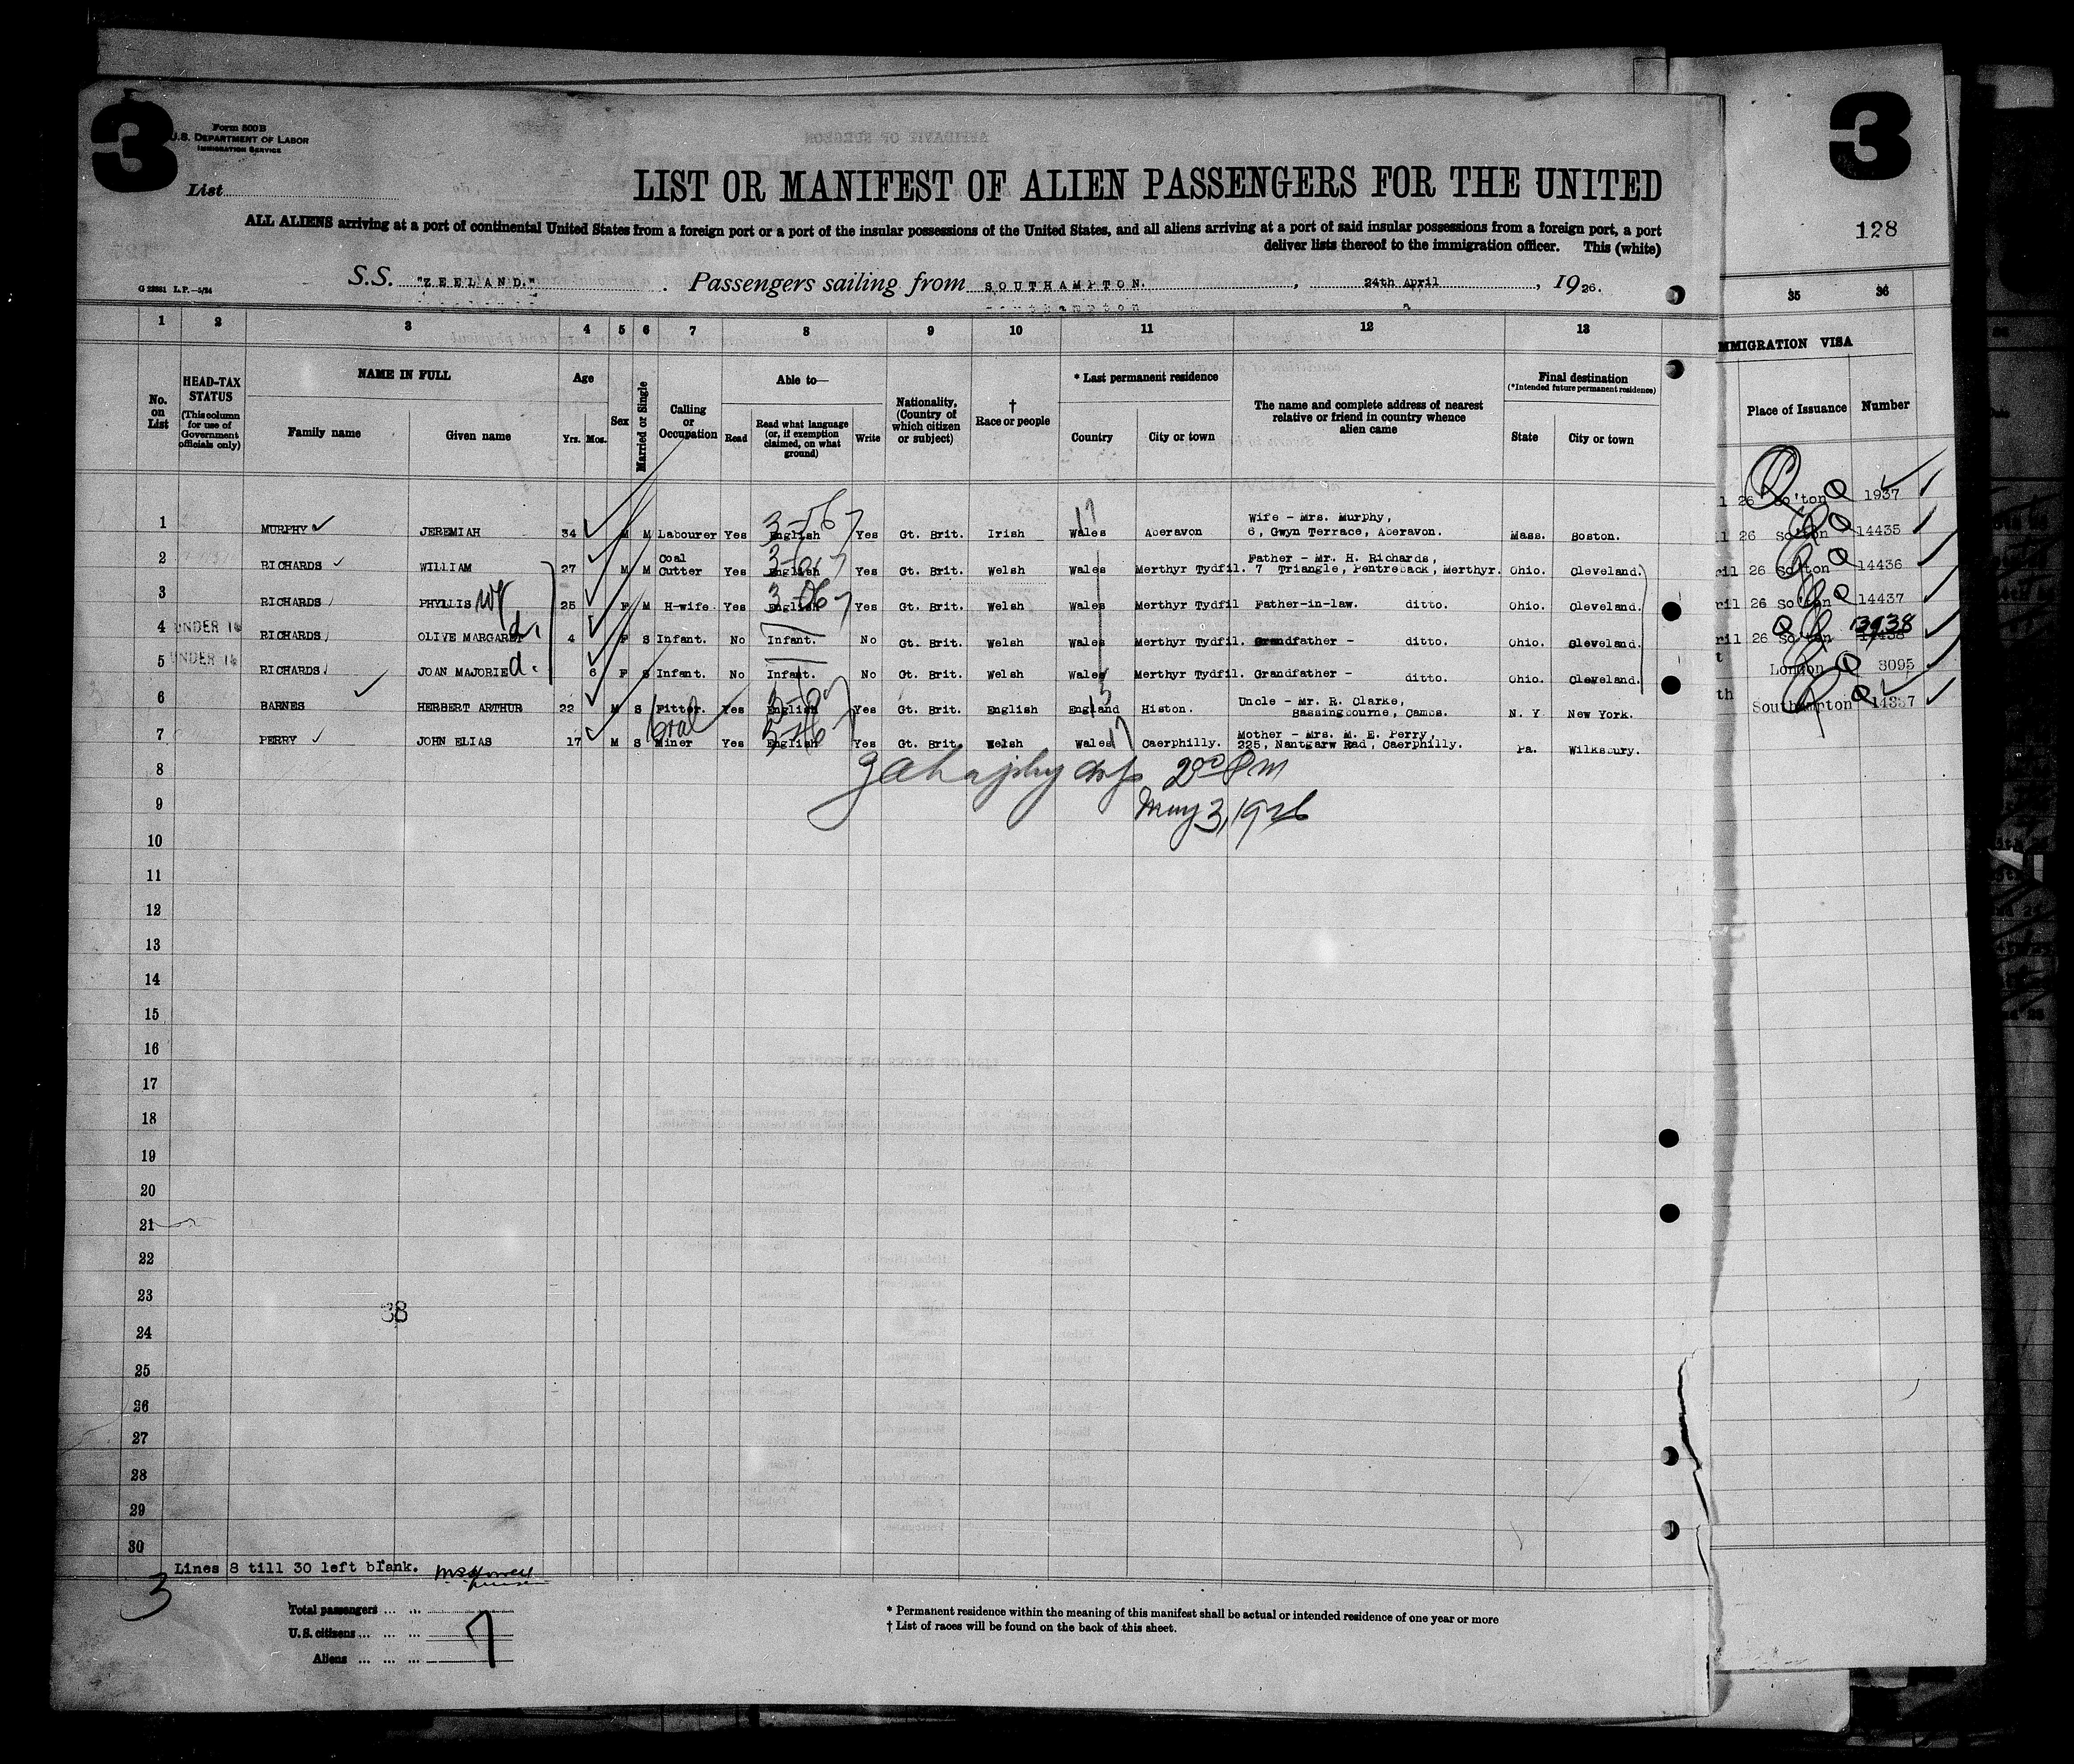 3
Form 500 B
U.S. DEPARTMENT OF LABOR
IMMIGRATION SERVICE
List
LIST OR MANIFEST OF ALIEN PASSENGERS FOR THE UNITED
ALL ALIENS arriving at a port of continental United States from a foreign port or a port of the insular possessions of the United States, and all aliens arriving at a port of said insular possessions from a foreign port, a port
deliver lists thereof to the immigration officer. This (white)
S.S. "ZEELAND." Passengers sailing from SOUTHAMPTON. , 24th April , 1926.
1 2 3 4 5 6 7 8 9 10 11 12 13
No. on List
HEAD-TAX STATUS (This column for use of Government officials only)
NAME IN FULL
Family name Given name
Age
Yrs. Mos.
Sex
Married or Single
Calling or Occupation
Able to—
Read
Read what language (or, if exemption claimed, on what ground)
Write
Nationality, (Country of which citizen or subject)
† Race or people
* Last permanent residence
Country City or town
The name and complete address of nearest relative or friend in country whence alien came
Final destination
(*Intended future permanent residence)
State City or town
1 MURPHY JEREMIAH 34 M M Labourer Yes English Yes Gt. Brit. Irish Wales Aberavon Wife - Mrs. Murphy, 6, Gwyn Terrace, Aberavon. Mass. Boston.
2 RICHARDS WILLIAM 27 M M Coal Cutter Yes English Yes Gt. Brit. Welsh Wales Merthyr Tydfil. Father - Mr. H. Richards, 7 Triangle, Pentreback, Merthyr. Ohio. Cleveland.
3 RICHARDS PHYLLIS wf 25 F M H-wife Yes English Yes Gt. Brit. Welsh Wales Merthyr Tydfil Father-in-law. ditto. Ohio. Cleveland.
4 UNDER 16 RICHARDS OLIVE MARGARET d. 4 F S Infant. No Infant. No Gt. Brit. Welsh Wales Merthyr Tydfil. Grandfather - ditto. Ohio. Cleveland.
5 UNDER 16 RICHARDS JOAN MAJORIE d. 6 F S Infant. No Infant. No Gt. Brit. Welsh Wales Merthyr Tydfil. Grandfather - ditto. Ohio. Cleveland.
6 BARNES HERBERT ARTHUR 22 M S Fitter. Yes English Yes Gt. Brit. English England Histon. Uncle - Mr. R. Clarke, Bassingbourne, Cambs. N. Y New York.
7 PERRY JOHN ELIAS 17 M S Coal Miner Yes English Yes Gt. Brit. Welsh Wales Caerphilly. Mother - Mrs. M. E. Perry, 225, Nantgarw Rad, Caerphilly. Pa. Wilksbury.
8
200 Pm
9
May 3, 1926
10
11
12
13
14
15
16
17
18
19
20
21
22
23
38
24
25
26
27
28
29
30
Lines 8 till 30 left blank.
3
Total passengers ... ...
U.S. citizens ... ... ...
Aliens ... ... ...
7
* Permanent residence within the meaning of this manifest shall be actual or intended residence of one year or more
† List of races will be found on the back of this sheet.
G 23851 L.P.—5/24
3
128
35 36
IMMIGRATION VISA
Place of Issuance Number
26 So'ton 1937
26 So'ton 14435
ril 26 So'ton 14436
ril 26 So'ton 14437
ril 26 So'ton
London 3095
th Southampton 14337